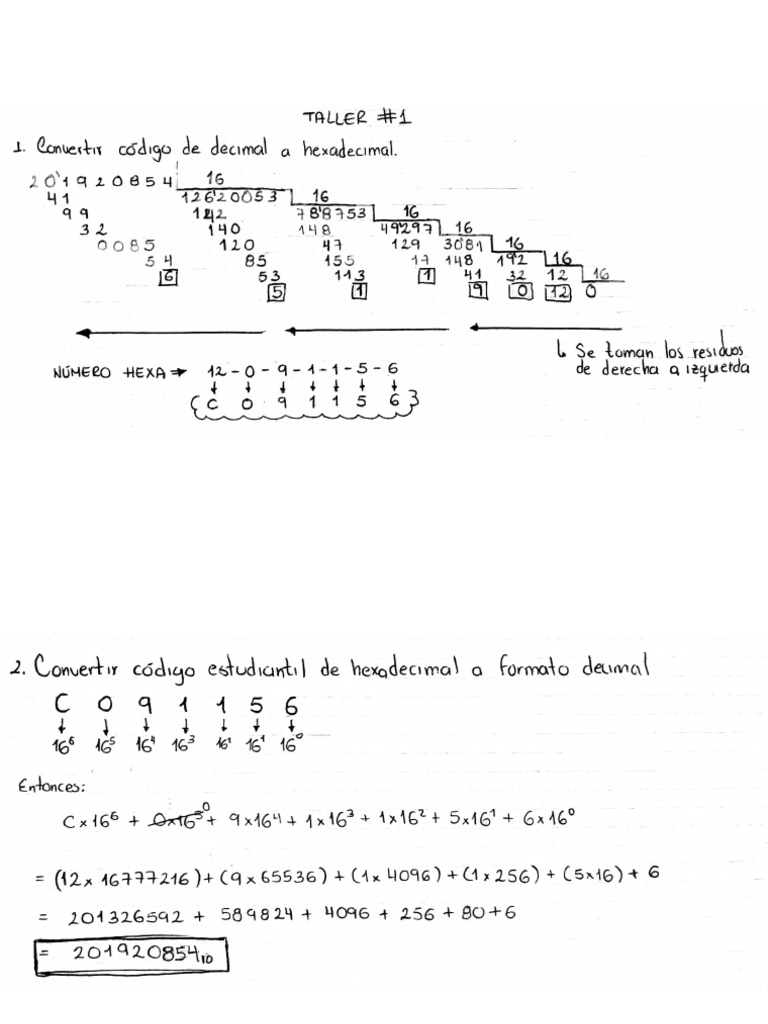 TALLER #1
1. Convertir código de decimal a hexadecimal.
201920854 16
41 12620053 16
99 142 788753 16
32 140 148 49297 16
0085 120 47 129 3081 16
54 85 155 17 148 192 16
6 53 113 1 41 32 12 16
5 1 9 0 12 0
↳ Se toman los residuos
de derecha a izquierda
NÚMERO HEXA → 12-0-9-1-1-5-6
{C 0 9 1 1 5 6}
2. Convertir código estudiantil de hexadecimal a formato decimal
C 0 9 1 1 5 6
16⁶ 16⁵ 16⁴ 16³ 16² 16¹ 16⁰
Entonces:
C×16⁶ + 0×16⁵ 0 + 9×16⁴ + 1×16³ + 1×16² + 5×16¹ + 6×16⁰
= (12×16777216)+(9×65536)+(1×4096)+(1×256)+(5×16)+6
= 201326592 + 589824 + 4096 + 256 + 80 + 6
= 201920854₁₀